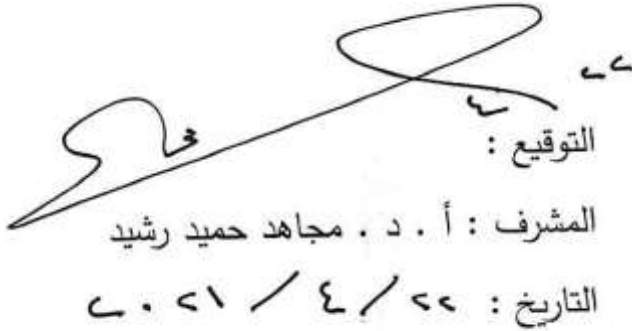 ٢٢
٤
التوقيع :
المشرف : أ . د . مجاهد حميد رشيد
التاريخ : ٢٢ / ٤ / ٢٠٢١